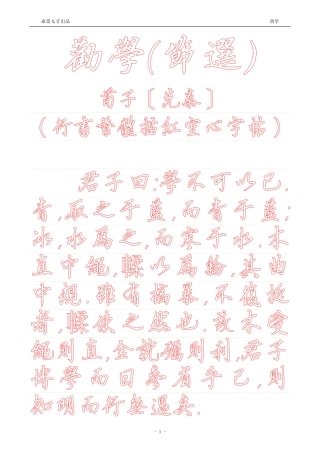 劝学
勸學(節選)
荀子〔先秦〕
(行書繁體描紅空心字帖)
君子曰:學不可以已.
青,取之于藍,而青于藍;
冰,水為之,而寒于水.木
直中繩,輮以為輪,其曲
中規,雖有槁暴,不復挺
者,輮使之然也.故木受
繩則直,金就礪則利,君子
博學而日參省乎己,則
知明而行無過矣.
- 1 -